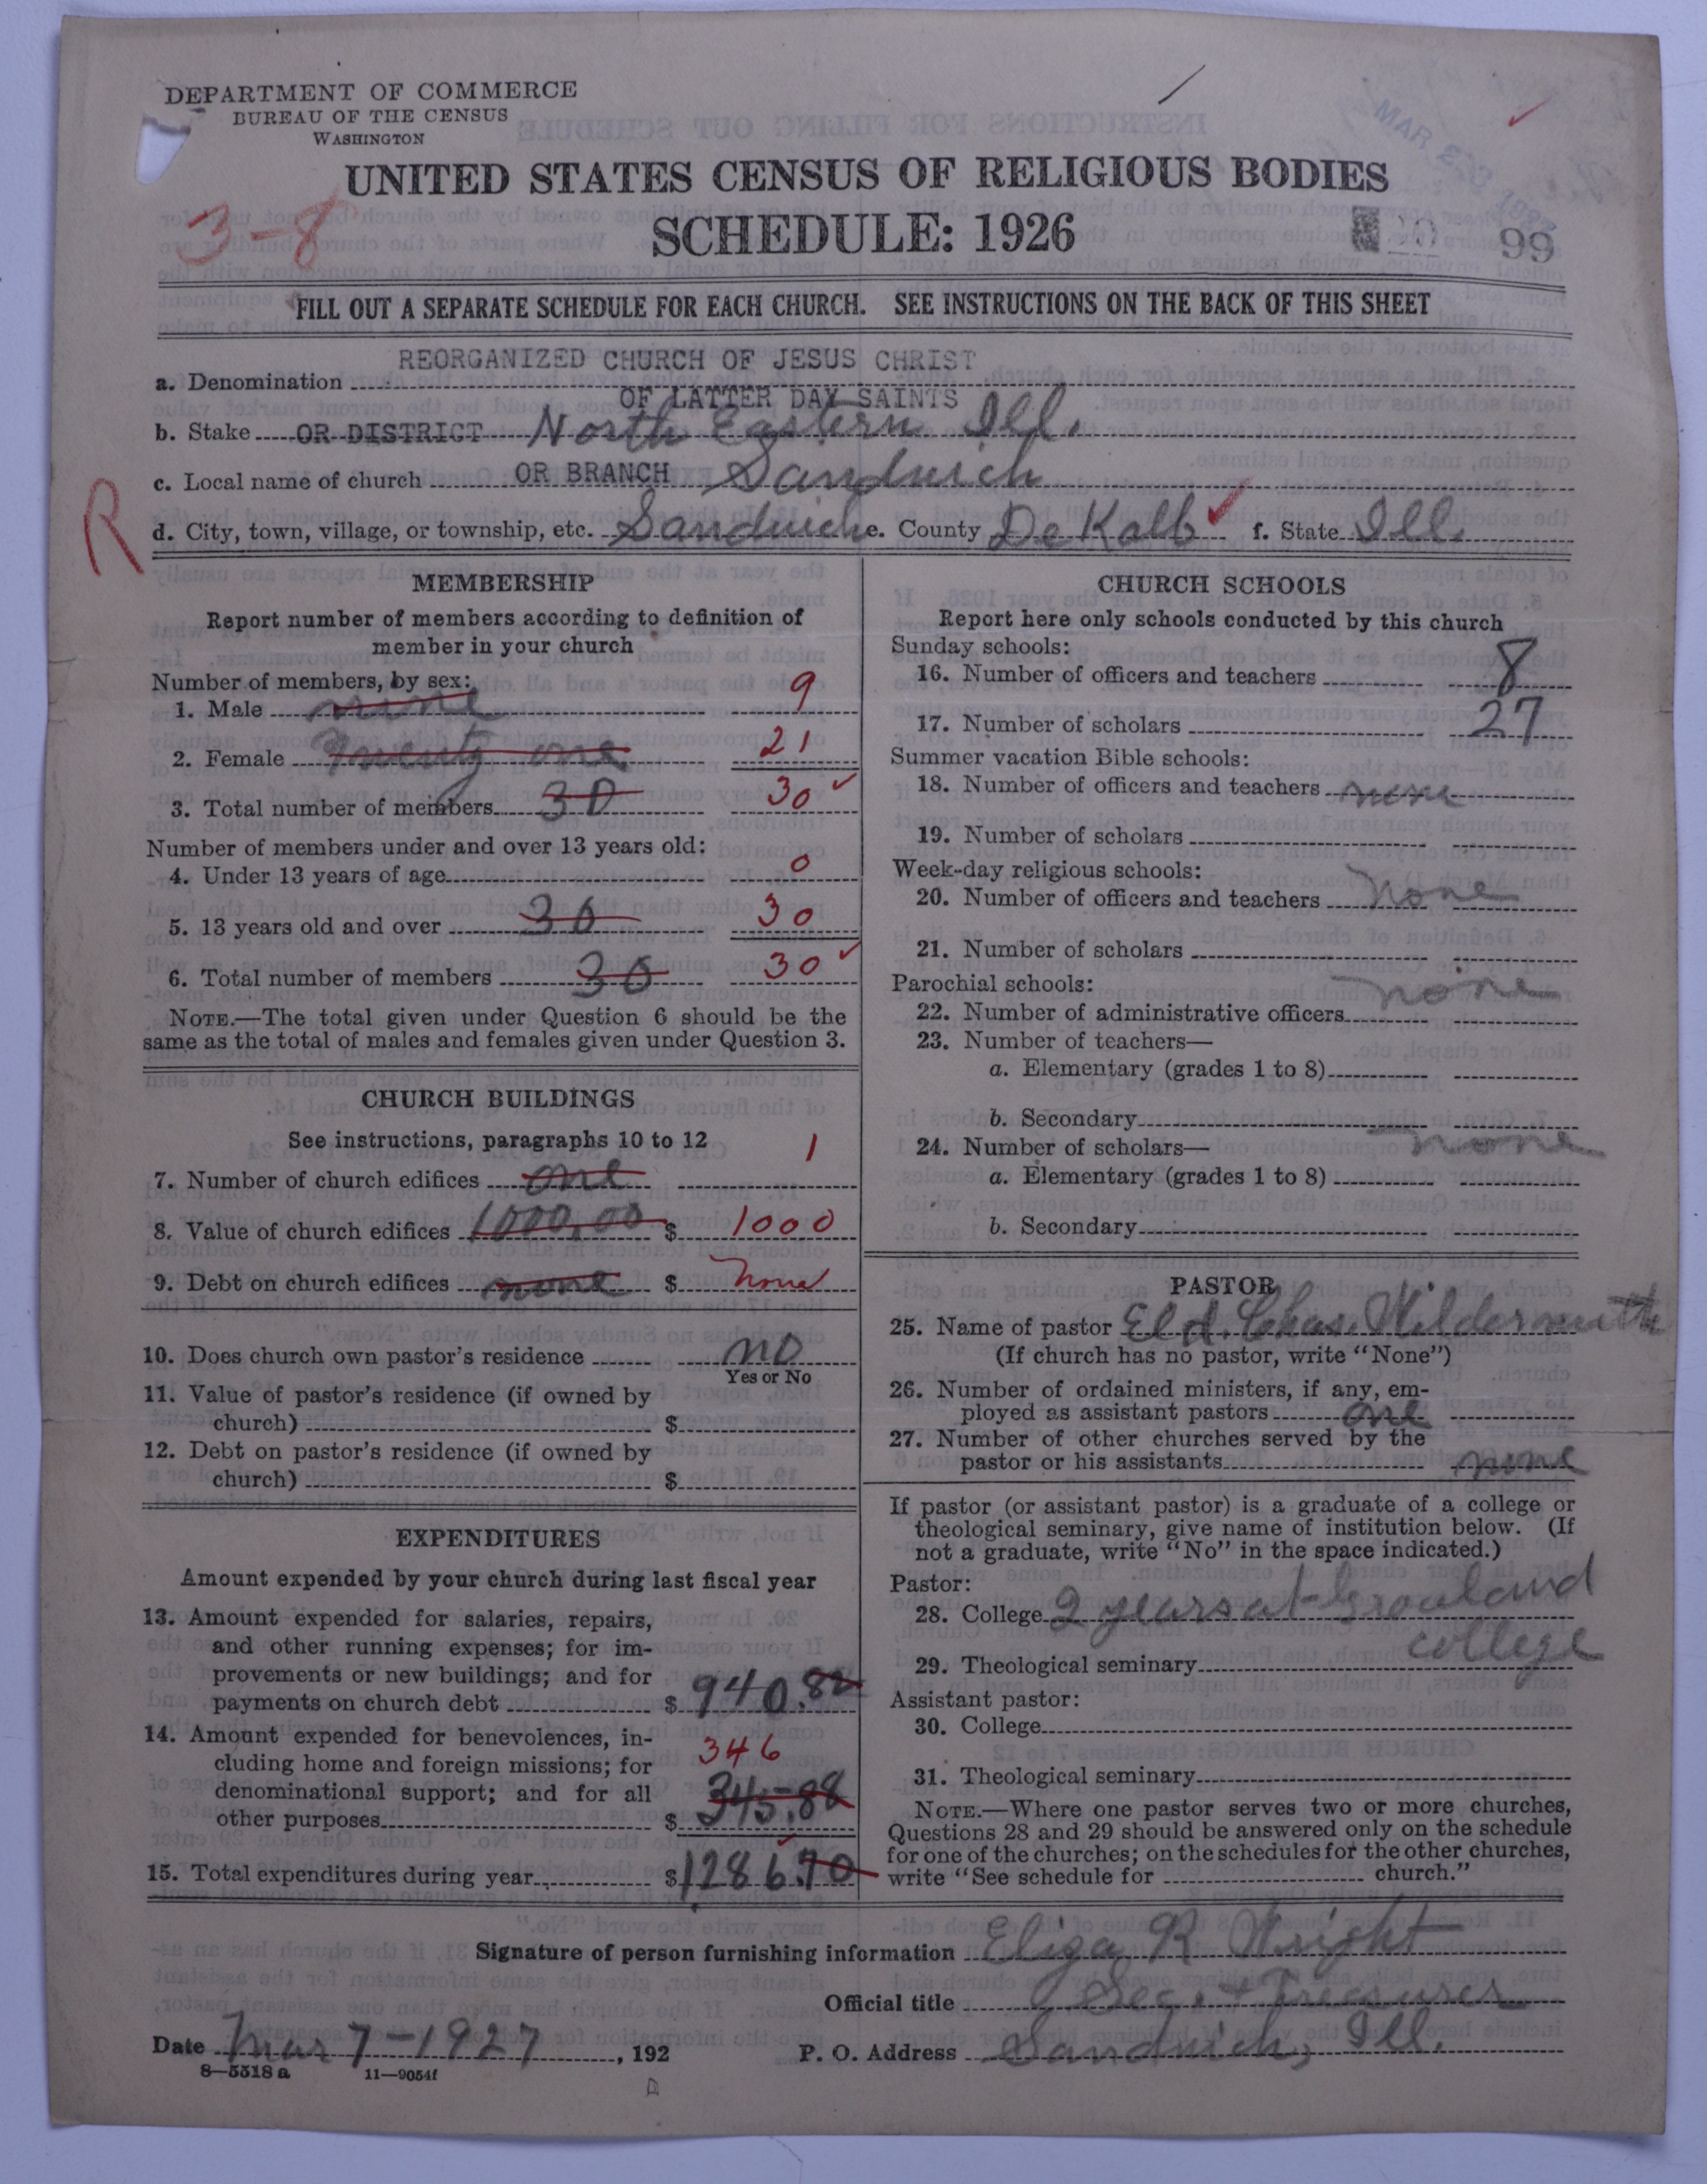 DEPARTMENT OF COMMERCE
BUREAU OF THE CENSUS
WASHINGTON
UNITED STATES CENSUS OF RELIGIOUS BODIES
SCHEDULE: 1926
3-8
MAR 1927
99
FILL OUT A SEPARATE SCHEDULE FOR EACH CHURCH. SEE INSTRUCTIONS ON THE BACK OF THIS SHEET
REORGANIZED CHURCH OF JESUS CHRIST
a. Denomination
OF LATTER DAY SAINTS
b. Stake OR DISTRICT North Eastern Ill.
c. Local name of church OR BRANCH Sandwich
R
d. City, town, village, or township, etc. Sandwich e. County De Kalb f. State Ill.
MEMBERSHIP
Report number of members according to definition of
member in your church
Number of members, by sex:
1. Male nine 9
2. Female Twenty one 21
3. Total number of members 30 30
Number of members under and over 13 years old:
4. Under 13 years of age 0
5. 13 years old and over 30 30
6. Total number of members 30 30
NOTE.—The total given under Question 6 should be the
same as the total of males and females given under Question 3.
CHURCH BUILDINGS
See instructions, paragraphs 10 to 12
7. Number of church edifices one 1
8. Value of church edifices 1000.00 $ 1000
9. Debt on church edifices none $ none
10. Does church own pastor's residence no
Yes or No
11. Value of pastor's residence (if owned by
church) $
12. Debt on pastor's residence (if owned by
church) $
EXPENDITURES
Amount expended by your church during last fiscal year
13. Amount expended for salaries, repairs,
and other running expenses; for im-
provements or new buildings; and for
payments on church debt $ 940.82
14. Amount expended for benevolences, in-
cluding home and foreign missions; for 346
denominational support; and for all
other purposes $ 345.88
15. Total expenditures during year $ 1286.70
CHURCH SCHOOLS
Report here only schools conducted by this church
Sunday schools:
16. Number of officers and teachers 8
17. Number of scholars 27
Summer vacation Bible schools:
18. Number of officers and teachers none
19. Number of scholars
Week-day religious schools:
20. Number of officers and teachers none
21. Number of scholars
Parochial schools: none
22. Number of administrative officers
23. Number of teachers—
a. Elementary (grades 1 to 8)
b. Secondary
24. Number of scholars— none
a. Elementary (grades 1 to 8)
b. Secondary
PASTOR
25. Name of pastor Eld. Chas. Wildermuth
(If church has no pastor, write "None")
26. Number of ordained ministers, if any, em-
ployed as assistant pastors one
27. Number of other churches served by the
pastor or his assistants none
If pastor (or assistant pastor) is a graduate of a college or
theological seminary, give name of institution below. (If
not a graduate, write "No" in the space indicated.)
Pastor:
28. College 2 years at Graceland
college
29. Theological seminary
Assistant pastor:
30. College
31. Theological seminary
NOTE.—Where one pastor serves two or more churches,
Questions 28 and 29 should be answered only on the schedule
for one of the churches; on the schedules for the other churches,
write "See schedule for church."
Signature of person furnishing information Eliza R Wright
Official title Sec. + Treasurer
Date Mar 7-1927, 192
P. O. Address Sandwich, Ill.
8—5518 a
11—9054f